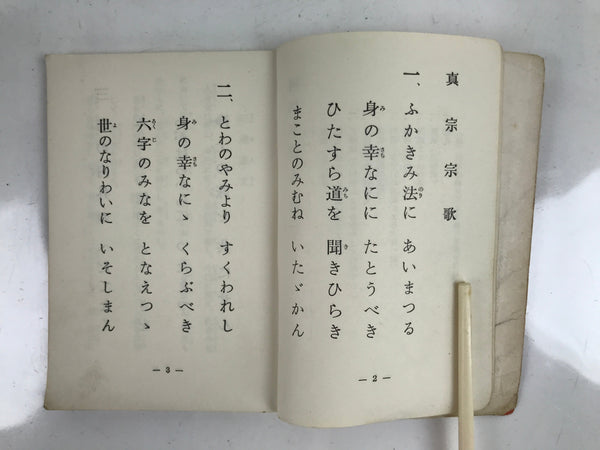 真宗宗歌
一、ふかきみ法に あいまつる
身の幸なにに たとうべき
ひたすら道を 聞きひらき
まことのみむね いたゞかん
— 2 —
二、とわのやみより すくわれし
身の幸なにゝ くらぶべき
六字のみなを となえつゝ
世のなりわいに いそしまん
— 3 —